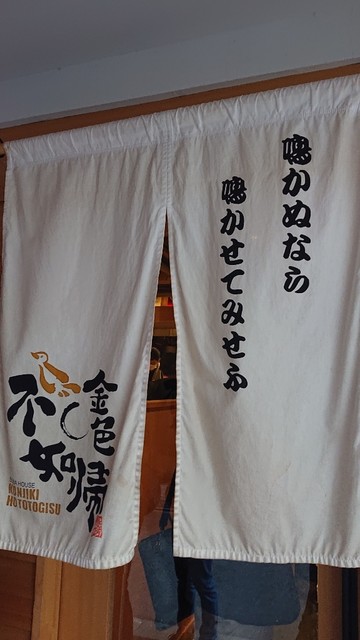 鳴かぬなら
鳴かせてみせふ
金色
不如帰
SOBA HOUSE
KONJIKI
HOTOTOGISU